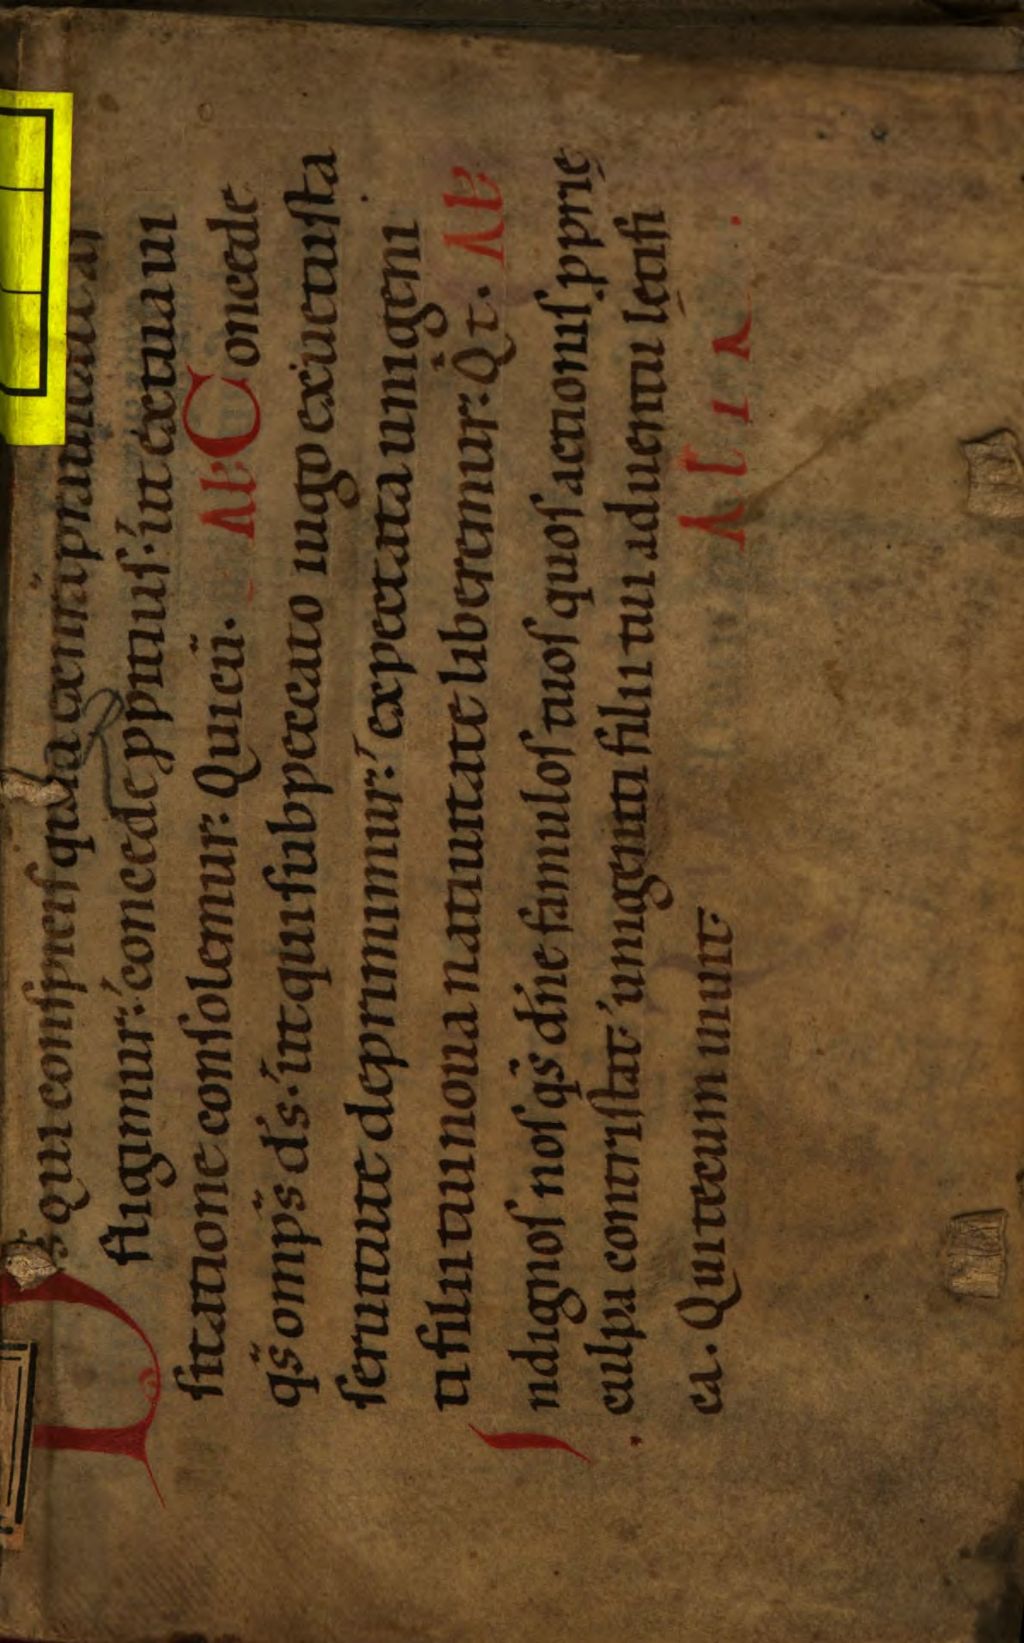 Ds qui conspicis quia ex nra prauitate af
fligimur: concede ppitius. ut ex tua ui
sitatione consolemur: Qui cū. Al Concede
qs omps ds. ut qui sub peccati iugo ex uetusta
seruitute deprimimur: expectata unigeni
ti filii tui noua natiuitate liberemur: Qt. Al
Indignos nos qs dne famulos tuos quos actionis pprie
culpa contristat: unigeniti filii tui aduentu letifi
ca. Qui tecum uiuit. Alia.